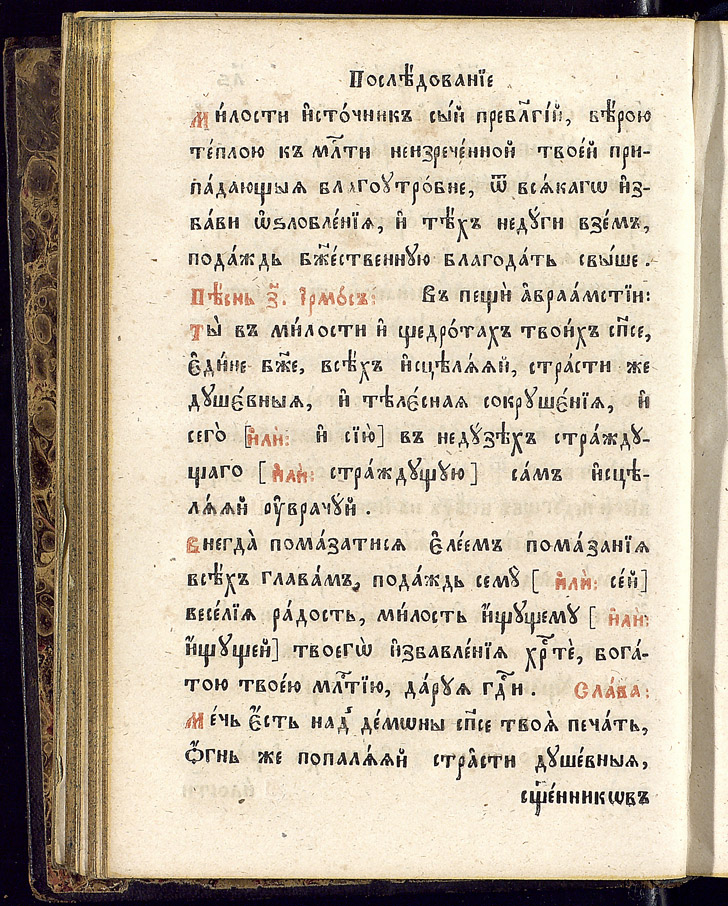 Послѣ́дованїе
Ми́лости и҆сто́чникъ сы́й пребл҃гі́й, вѣ́рою
те́плою къ млⷭ҇ти неизрече́нной твое́й при-
па́дающыѧ благоꙋтро́бне, ѿ всѧ́кагѡ и҆з-
ба́ви ѡ҆ѕлобле́нїѧ, и҆ тѣ́хъ недꙋ́ги взе́мъ,
пода́ждь бж҃е́ственнꙋю благода́ть свы́ше .
Пѣ́снь з҃. І҆рмо́съ: Въ пещѝ а҆враа́мстїи:
Ты̀ въ ми́лости и҆ щедро́тахъ твои́хъ сп҃се,
є҆ди́не бж҃е, всѣ́хъ и҆сцѣлѧ́ѧй, стра́сти же
дꙋшє́вныѧ, и҆ тѣлє́снаѧ сокрꙋшє́нїѧ, и҆
сего̀ [и҆лѝ: и҆ сїю̀] въ недꙋ́зѣхъ стра́ждꙋ-
щаго [и҆лѝ: стра́ждꙋщꙋю] са́мъ и҆сцѣ-
лѧ́ѧй ᲂу҆врачꙋ́й .
Внегда̀ пома́затисѧ є҆ле́емъ пома́занїѧ
всѣ́хъ глава́мъ, пода́ждь семꙋ̀ [ и҆лѝ: се́й]
весе́лїѧ ра́дость, ми́лость и҆́щꙋщемꙋ [ и҆лѝ:
и҆́щꙋщей] твоегѡ̀ и҆збавле́нїѧ хрⷭ҇тѐ, бога́-
тою твое́ю млⷭ҇тїю, да́рꙋѧ гдⷭ҇и . Сла́ва:
Ме́чь є҆́сть над̾ де́мѡны сп҃се твоѧ̀ печа́ть,
ѻ҆́гнь же попалѧ́ѧй стра̑сти дꙋшє́вныѧ,
сщ҃е́нникѡвъ